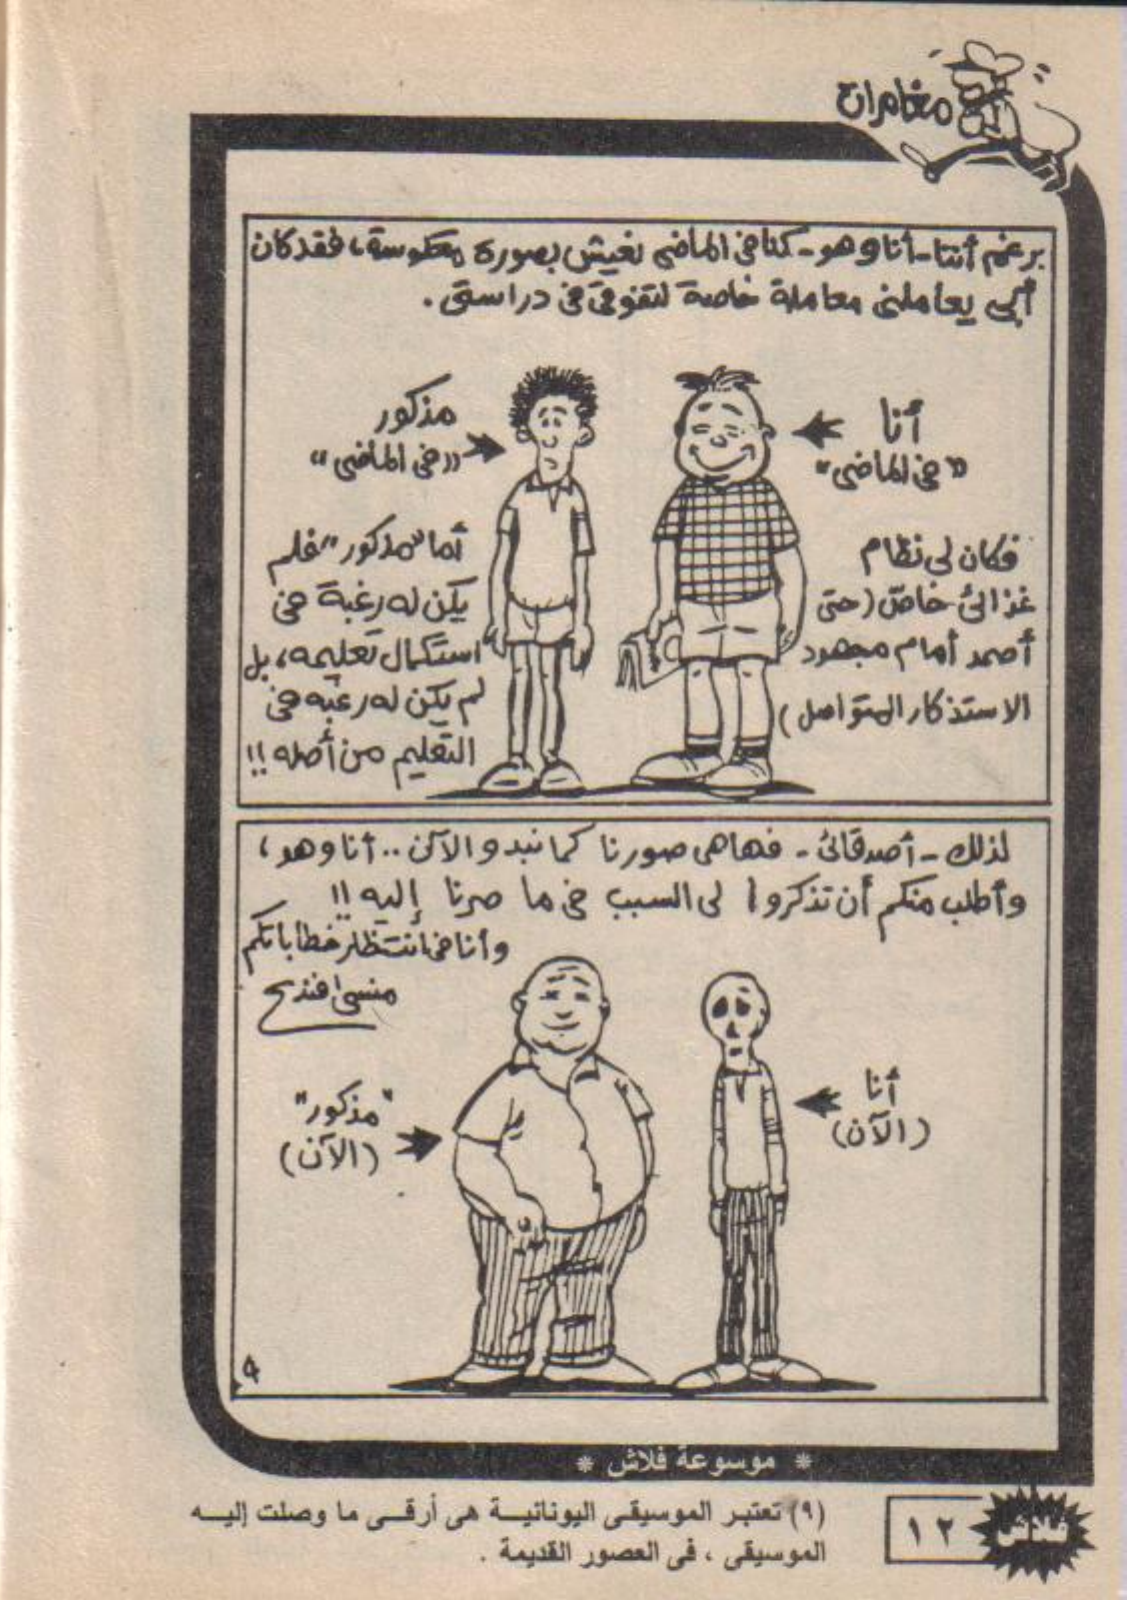 مغامرات
برغم أننا - أنا وهو - كنا فى الماضى نعيش بصورة معكوسة، فقد كان
أبى يعاملنى معاملة خاصة لتفوقى فى دراستى .
أنا
"فى الماضى"
مذكور
"فى الماضى"
فكان لى نظام
غذائى خاص (حتى
أصمد أمام مجهود
الاستذكار المتواصل)
أما "مذكور" فلم
يكن له رغبة فى
استكمال تعليمه، بل
لم يكن له رغبه فى
التعليم من أصله !!
لذلك - أصدقائى - فها هى صورنا كما نبدو الآن .. أنا وهو ،
وأطلب منكم أن تذكروا لى السبب فى ما صرنا إليه !!
وأنا فى انتظار خطاباتكم
منسى افندى
أنا
(الآن)
"مذكور"
(الآن)
٩
* موسوعة فلاش *
(٩) تعتبر الموسيقى اليونانية هى أرقى ما وصلت إليه
الموسيقى ، فى العصور القديمة .
١٢
فلاش